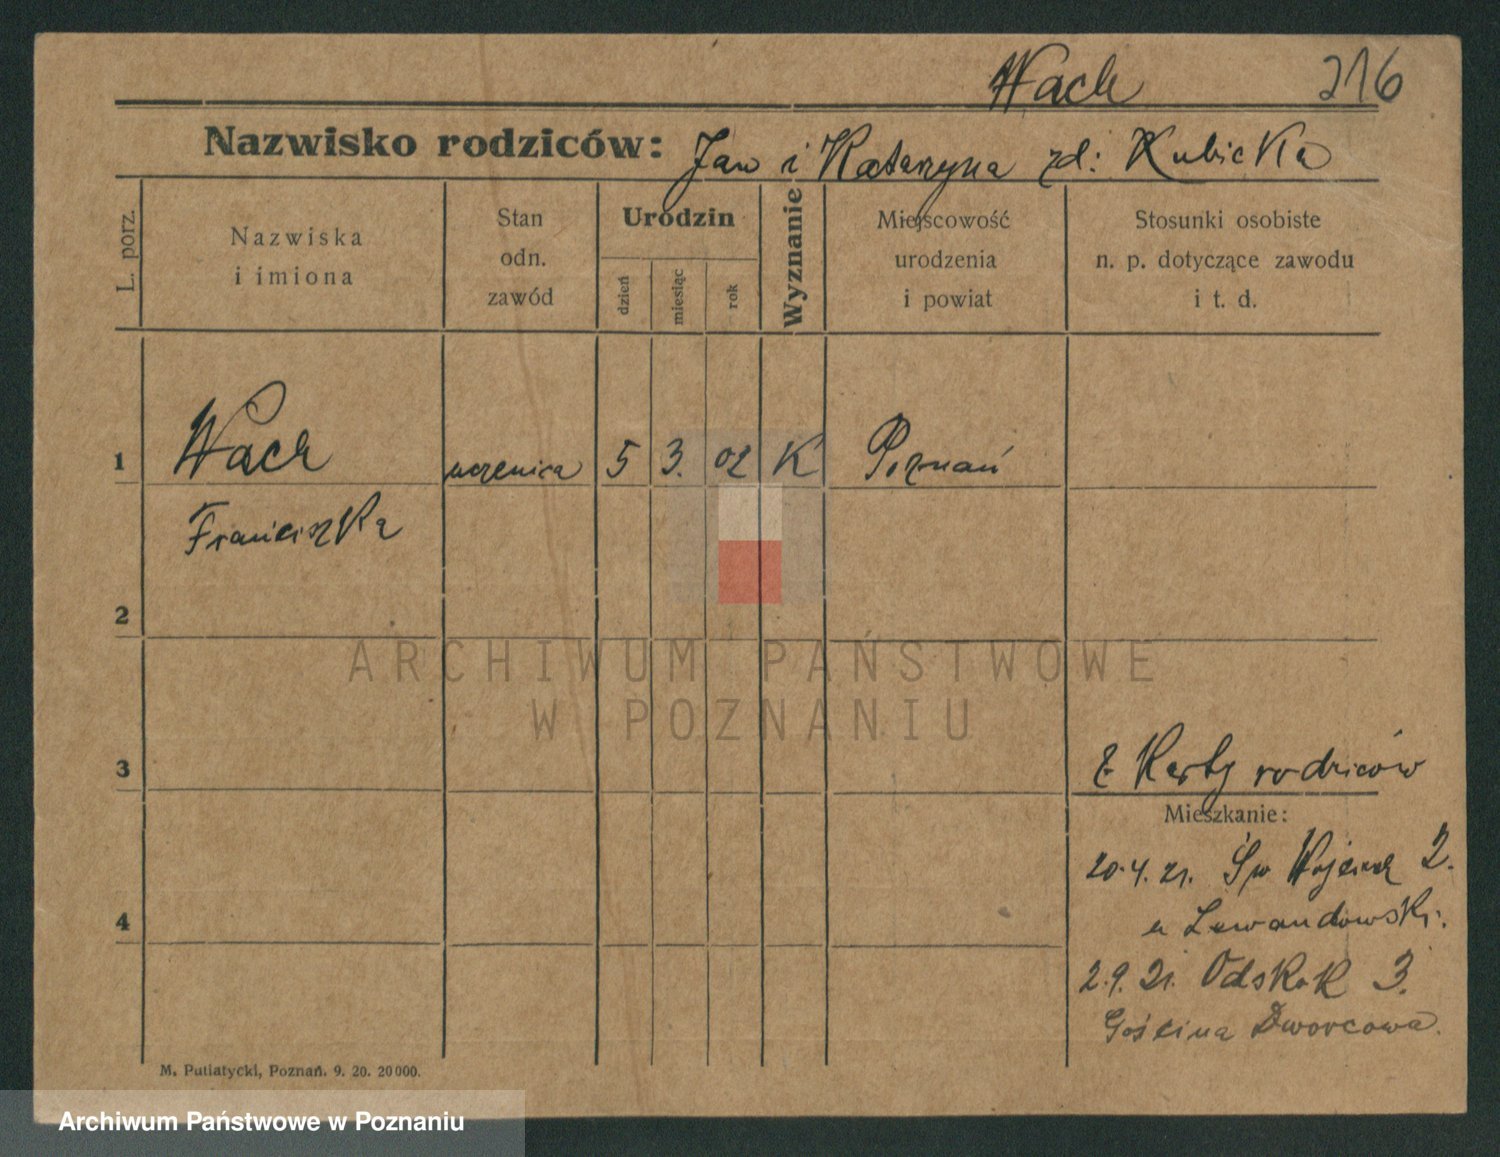 Wach 216
Nazwisko rodziców: Jan i Katarzyna zd: Kubicka
L. porz.
Nazwiska
i imiona
Stan
odn.
zawód
Urodzin
dzień
miesiąc
rok
Wyznanie
Miejscowość
urodzenia
i powiat
Stosunki osobiste
n. p. dotyczące zawodu
i t. d.
1 Wach uczenica 5 3. 02 K Poznań
Franciszka
2
ARCHIWUM PAŃSTWOWE
W POZNANIU
3
z Karty rodziców
Mieszkanie:
20.4.21. Św Wojciech 2.
u Lewandowski.
4
2.9.21. Odskok 3.
Gościna Dworcowa.
M. Putiatycki, Poznań. 9. 20. 20000.
Archiwum Państwowe w Poznaniu